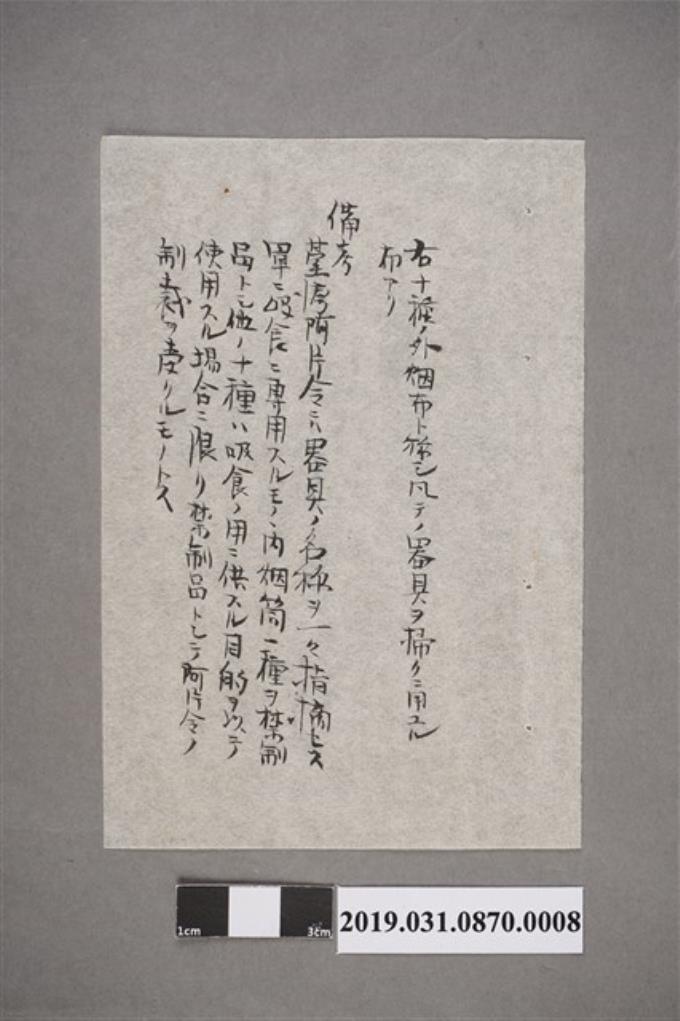 右十種ノ外烟布ト称シ凡テノ器具ヲ掃クニ用ユル
布アリ
備考
臺湾阿片令ニハ器具ノ名称ヲ一々指摘セス
単ニ吸食ニ専用スルモノヽ内烟筒一種ヲ禁制
品トシ他ノ十種ハ吸食ノ用ニ供スル目的ヲ以テ
使用スル場合ニ限リ禁制品トシテ阿片令ノ
制裁ヲ受クルモノトス
1cm 3cm
2019.031.0870.0008